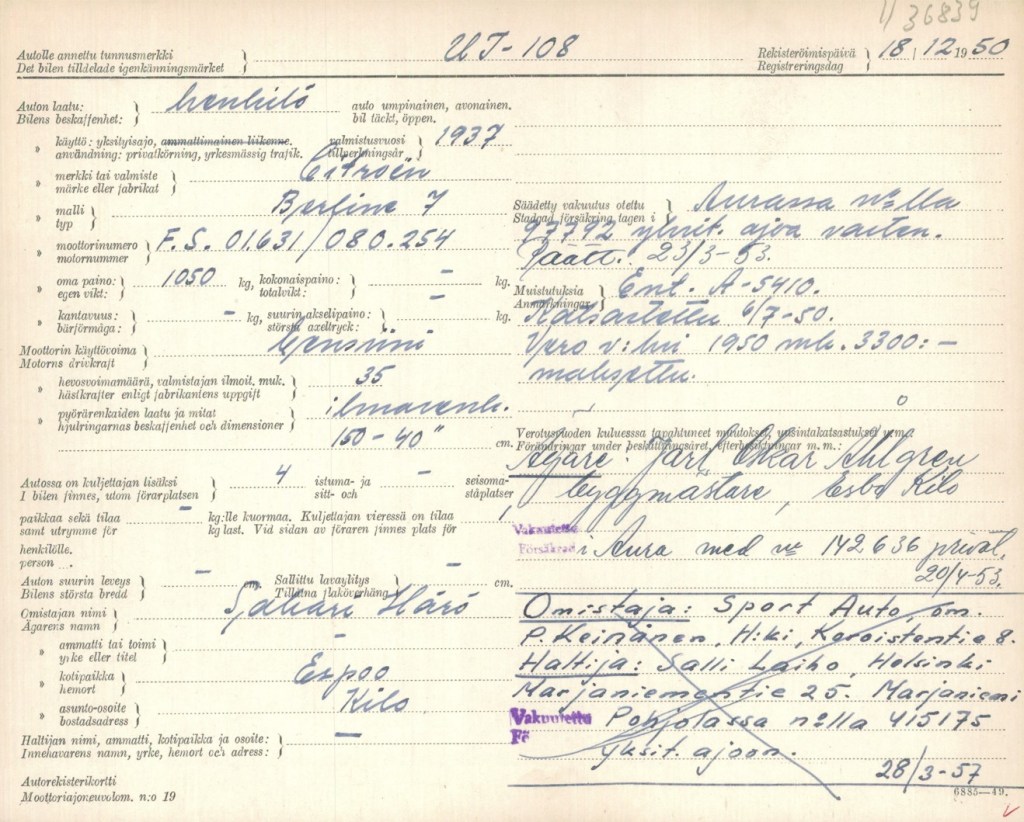 1) 36839
Autolle annettu tunnusmerkki } UJ-108 Rekisteröimispäivä } 18/12 1950
Det bilen tilldelade igenkänningsmärket Registreringsdag
Auton laatu: } henkilö auto umpinainen, avonainen.
Bilens beskaffenhet: bil täckt, öppen.
» käyttö: yksityisajo, ammattimainen liikenne. valmistusvuosi } 1937
användning: privatkörning, yrkesmässig trafik. tillverkningsår
» merkki tai valmiste } Citroën
märke eller fabrikat
» malli } Berline 7
typ
» moottorinumero } F.S. 01.631/080.254
motornummer
» oma paino: } 1050 kg, kokonaispaino: } – kg.
egen vikt: totalvikt:
» kantavuus: } – kg, suurin akselipaino: } – kg.
bärförmåga: största axeltryck:
Moottorin käyttövoima } bensiini
Motorns drivkraft
» hevosvoimamäärä, valmistajan ilmoit. muk. } 35
hästkrafter enligt fabrikantens uppgift
» pyörärenkaiden laatu ja mitat } ilmarenk.
hjulringarnas beskaffenhet och dimensioner 150-40" cm.
Autossa on kuljettajan lisäksi } 4 istuma- ja – seisoma-
I bilen finnes, utom förarplatsen sitt- och ståplatser
paikkaa sekä tilaa – kg:lle kuormaa. Kuljettajan vieressä on tilaa 1
samt utrymme för kg last. Vid sidan av föraren finnes plats för
henkilölle.
person ....
Auton suurin leveys } – cm. Sallittu lavaylitys } – cm.
Bilens största bredd Tillåtna flaköverhäng
Omistajan nimi } Härö
Ägarens namn
» ammatti tai toimi } –
yrke eller titel
» kotipaikka } Espoo
hemort
» asunto-osoite } Kilo
bostadsadress
Haltijan nimi, ammatti, kotipaikka ja osoite: } –
Innehavarens namn, yrke, hemort och adress:
Autorekisterikortti
Moottoriajoneuvolom. n:o 19
Säädetty vakuutus otettu } Aurassa n:o lla
Stadgad försäkring tagen i
97792 yksit. ajoa varten.
Päätt. 23/3-53.
Muistutuksia } Ent. A-5410.
Anmärkningar
Katsastettu 6/7-50.
Vero v:lta 1950 mk. 3300:–
maksettu.
Verotusvuoden kuluessa tapahtuneet muutokset, uusintakatsastukset y.m.:
Förändringar under beskattningsåret, efterbesiktningar m. m.:
Ägare: Jarl Oskar Ahlgren
byggmästare, Esbo Kilo
Vakuutettu
Försäkrad i Aura med nr 142636 privat.
20/4-53.
Omistaja: Sport Auto, om.
P. Keinänen, H:ki, Koroistentie 8.
Haltija: Salli Laiho, Helsinki
Marjaniementie 25. Marjaniemi
Vakuutettu Pohjolassa n:lla 415175
Fö yksit. ajoon.
28/3-57
6885—49.